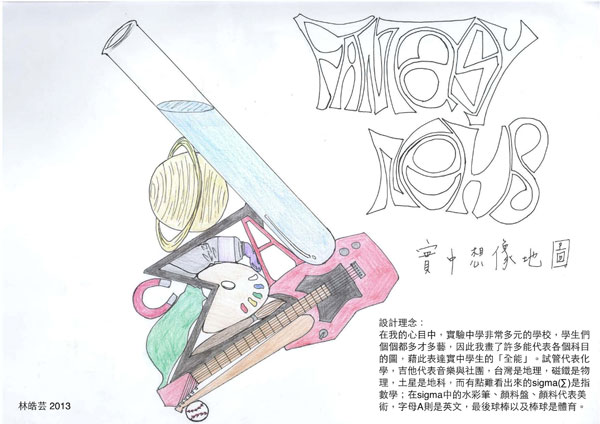 FANTASY
NEHS
實中想像地圖
A
設計理念：
在我的心目中，實驗中學非常多元的學校，學生們
個個都多才多藝，因此我畫了許多能代表各個科目
的圖，藉此表達實中學生的「全能」。試管代表化
學，吉他代表音樂與社團，台灣是地理，磁鐵是物
理，土星是地科，而有點難看出來的sigma(∑)是指
數學；在sigma中的水彩筆、顏料盤、顏料代表美
術，字母A則是英文，最後球棒以及棒球是體育。
林皓芸 2013